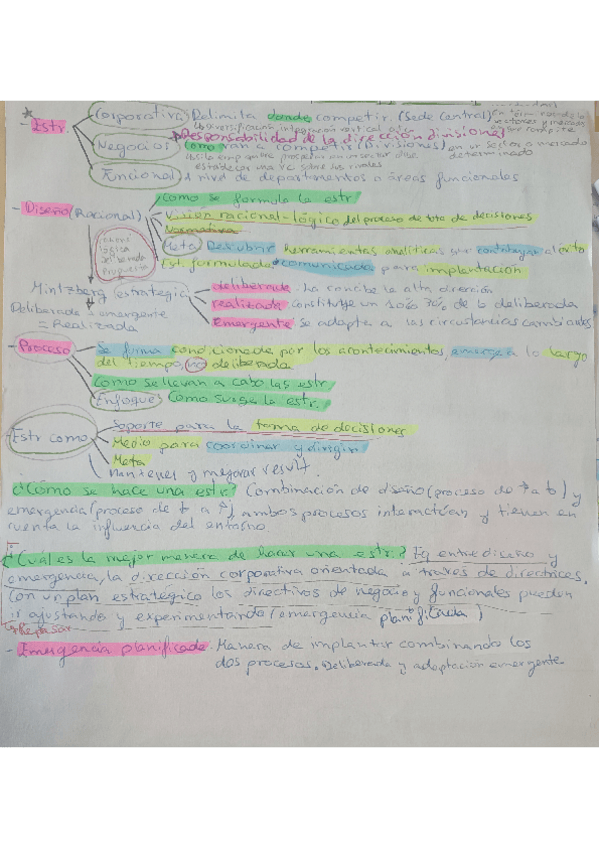 - Estr.
Corporativa Delimita donde competir. (sede central)
Responsabilidad de la dirección divisional
Negocios Como van a competir (Divisiones) en un sector o mercado
determinado
Funcional A nivel de departamentos o áreas funcionales
- Diseño (Racional)
Como se formula la estr
Visión racional-lógico del proceso de toma de decisiones
Normativa
Meta Descubrir herramientas analíticas que contribuyen al éxito
Est. formulada comunicada para implantación
lógica
deliberada
propuesta
Mintzberg estrategia
deliberada. ha concibe la alta dirección
realizada constituye un 10% 30% de la deliberada
Emergente Se adapta a las circunstancias cambiantes
Deliberada + emergente
= Realizada
- Proceso
Se forma condicionada por los acontecimientos, emerge a lo largo
del tiempo, no deliberada
Como se llevan a cabo las estr.
Enfoques Como surge la estr.
Estr como
Soporte para la toma de decisiones
Medio para coordinar y dirigir
Meta
Mantener y mejorar result.
¿Cómo se hace una estr? Combinación de diseño (proceso de ↑ a ↓) y
emergencia (proceso de ↓ a ↑) ambos procesos interactúan y tienen en
cuenta la influencia del entorno.
¿Cuál es la mejor manera de hacer una estr? Eq entre diseño y
emergencia, la dirección corporativa orientada a través de directrices.
Con un plan estratégico los directivos de negocio y funcionales pueden
ir ajustando y experimentando (emergencia planificada)
Repasar
- Emergencia planificada. Manera de implantar combinando los
dos procesos. Deliberada y adaptación emergente.